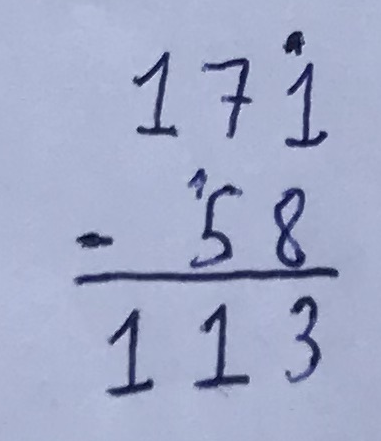 171
- 58
113